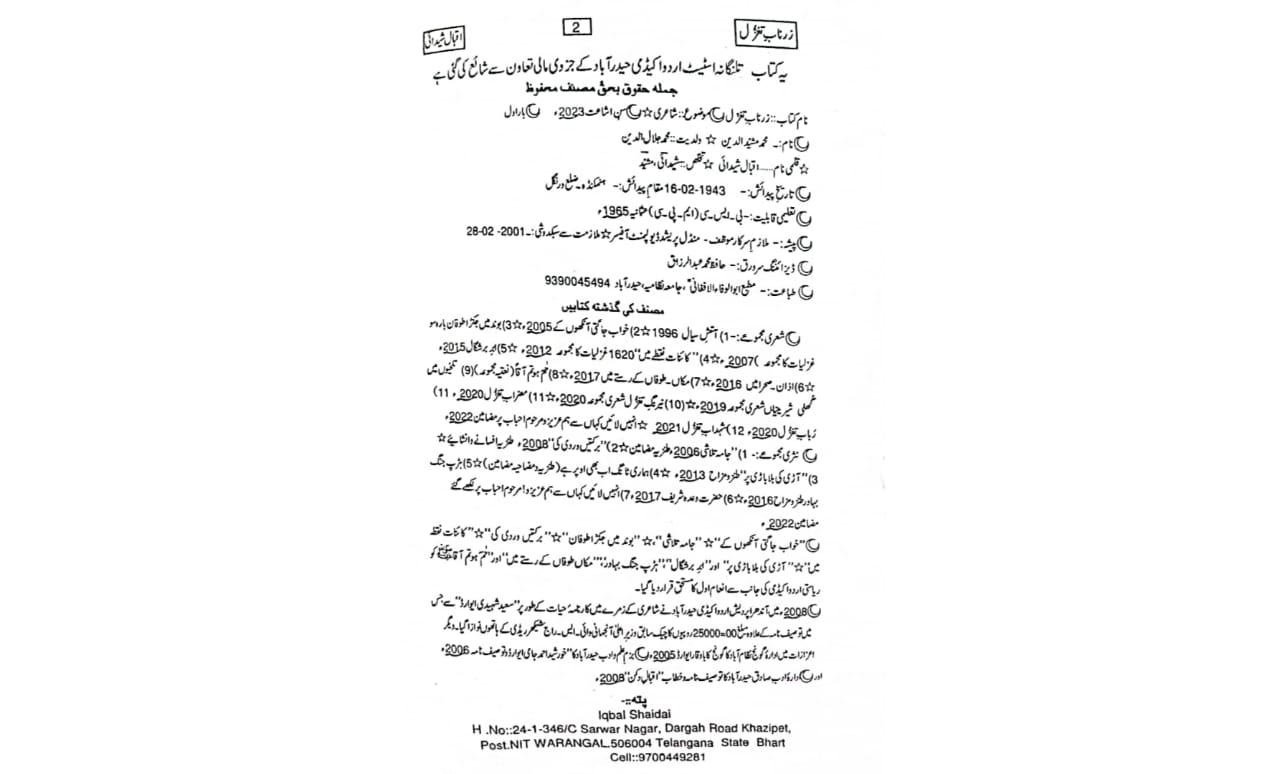 زرنابِ تغزل
2
اقبال شیدائی
یہ کتاب تلنگانہ اسٹیٹ اردو اکیڈمی حیدرآباد کے جزوی مالی تعاون سے شائع کی گئی ہے
جملہ حقوق بحق مصنف محفوظ
نام کتاب:: زرنابِ تغزل موضوع:: شاعری ☆ سن اشاعت 2023ء بار اول
نام:۔ محمد مشید الدین ☆ ولدیت:: محمد جلال الدین
☆ قلمی نام..... اقبال شیدائی ☆ تخلص:۔ شیدائی، مشید
تاریخ پیدائش:- 16-02-1943 مقام پیدائش:- ہنمکنڈہ۔ ضلع ورنگل
تعلیمی قابلیت:- بی۔ایس۔سی (ایم۔پی۔سی) عثمانیہ 1965ء
پیشہ:- ملازم سرکار موقف - منڈل پریشد ڈیولپمنٹ آفیسر ☆ ملازمت سے سبکدوشی:۔ 28-02-2001
ڈیزائننگ سرورق:- حافظ محمد عبدالرزاق
طباعت:- مطبع ابوالوفاء الافغانیؒ، جامعہ نظامیہ، حیدرآباد 9390045494
مصنف کی گذشتہ کتابیں
شعری مجموعے:-1) آتشِ سیال 1996 ☆2) خواب جاگتی آنکھوں کے 2005ء ☆3) بوند میں جکڑا طوفان بارہ سو
غزلیات کا مجموعہ )2007ء ☆4) "کائنات نقطے میں" 1620 غزلیات کا مجموعہ 2012ء ☆5) ابرِ برشگال 2015ء
☆6) اذان۔ صحرا میں 2016ء ☆7) مکاں۔ طوفاں کے رستے میں 2017ء ☆8) تم ہو تم آقا (نعتیہ مجموعہ) (9) تلخیوں میں
گھلی شیرینیاں شعری مجموعہ 2019ء ☆ (10) نیرنگِ تغزل شعری مجموعہ 2020ء ☆11) مضرابِ تغزل 2020ء 11)
ربابِ تغزل 2020ء 12) شہدابِ تغزل 2021 ☆ انہیں لائیں کہاں سے ہم عزیز و مرحوم احباب پر مضامین 2022ء
نثری مجموعے:- 1) "جامہ تلاشی 2006ء طنزیہ مضامین ☆2) "برکتیں وردی کی" 2008ء طنزیہ افسانے و انشائیے ☆
3) "آڑی کی بلا باڑی پر" طنز و مزاح 2013ء ☆4) ہماری ٹانگ اب بھی اوپر ہے (طنزیہ و مضاحیہ مضامین) ☆5) ہڑپ جنگ
بہادر طنز و مزاح 2016ء ☆6) حضرت وعدہ شریف 2017ء 7) انہیں لائیں کہاں سے ہم عزیز و! مرحوم احباب پر لکھے گئے
مضامین 2022ء
"خواب جاگتی آنکھوں کے" ☆ "جامہ تلاشی"، ☆ "بوند میں جکڑا طوفان" ☆ "برکتیں وردی کی" ☆ "کائنات نقطہ
میں" ☆ "آڑی کی بلا باڑی پر" اور "ابرِ برشگال"؛ "ہڑپ جنگ بہادر"؛ "مکاں طوفاں کے رستے میں" اور "تم ہو تم آقاﷺ کو
ریاستی اردو اکیڈمی کی جانب سے انعام اول کا مستحق قرار دیا گیا۔
2008ء میں آندھرا پردیش اردو اکیڈمی حیدرآباد نے شاعری کے زمرے میں کارنامۂ حیات کے طور پر "سعید شہیدی ایوارڈ" سے جس
میں توصیف نامہ کے علاوہ مبلغ 00=25000 روپیوں کا چیک سابق وزیر اعلیٰ آنجہانی وائی۔ایس۔راج شیکھر ریڈی کے ہاتھوں نوازا گیا۔ دیگر
اعزازات میں ادارۂ گونج نظام آباد کا گونج کا باوقار ایوارڈ 2005ء بزم علم و ادب حیدرآباد کا "خورشید احمد جامی ایوارڈ و توصیف نامہ 2006ء
اور ادارہ ادب صادق حیدرآباد کا توصیف نامہ و خطاب "اقبالِ دکن" 2008ء
پتہ:۔
Iqbal Shaidai
H .No::24-1-346/C Sarwar Nagar, Dargah Road Khazipet,
Post.NIT WARANGAL.506004 Telangana State Bhart
Cell::9700449281